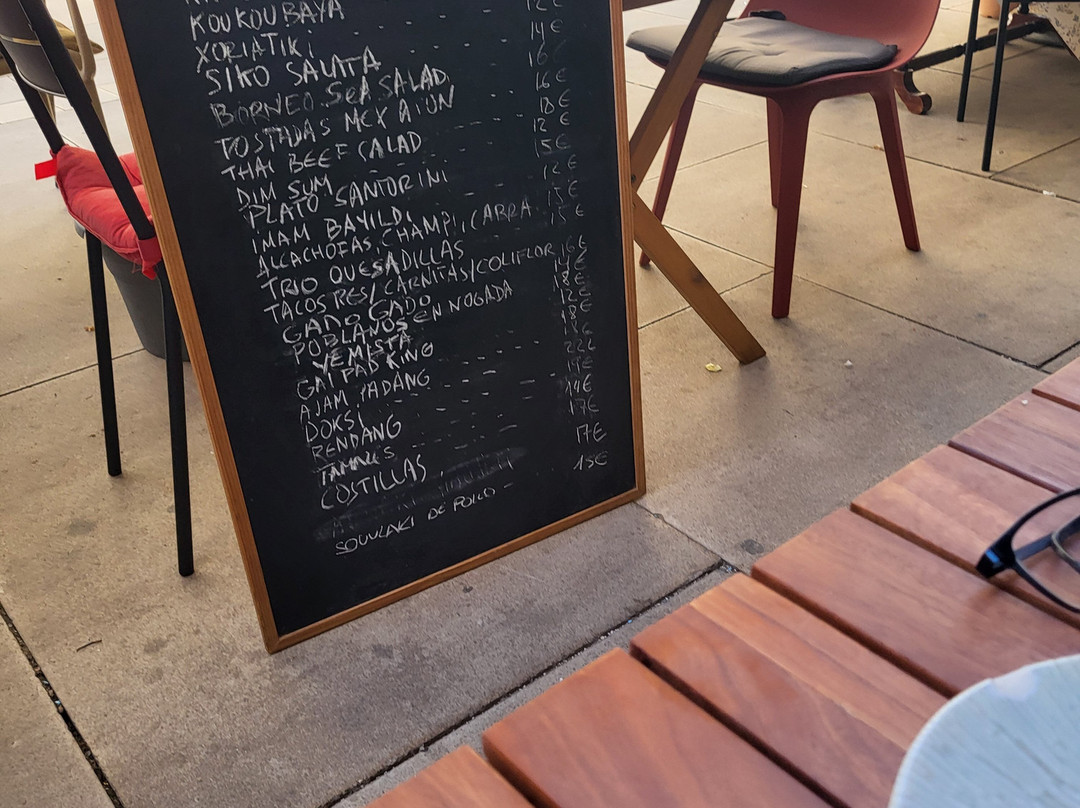 KOUKOUBAYA 12€
XORIATIKI 14€
SIKO SALATA 16
BORNEO SEA SALAD 16€
TOSTADAS MEX ATUN 18€
THAI BEEF SALAD 12€
DIM SUM 15€
PLATO SANTORINI
IMAM BAYILDI 12€
ALCACHOFAS, CHAMPI, CABRA 15€
TRIO QUESADILLAS 15€
TACOS RES/CARNITAS/COLIFLOR 16€
GADO GADO
POBLANOS EN NOGADA 18€
YEMISTA 12€
GAI PAD KING 18€
AJAM PADANG
DOKSI 22€
RENDANG
TAMALES
COSTILLAS 17€
SOUVLAKI DE POLLO - 15€